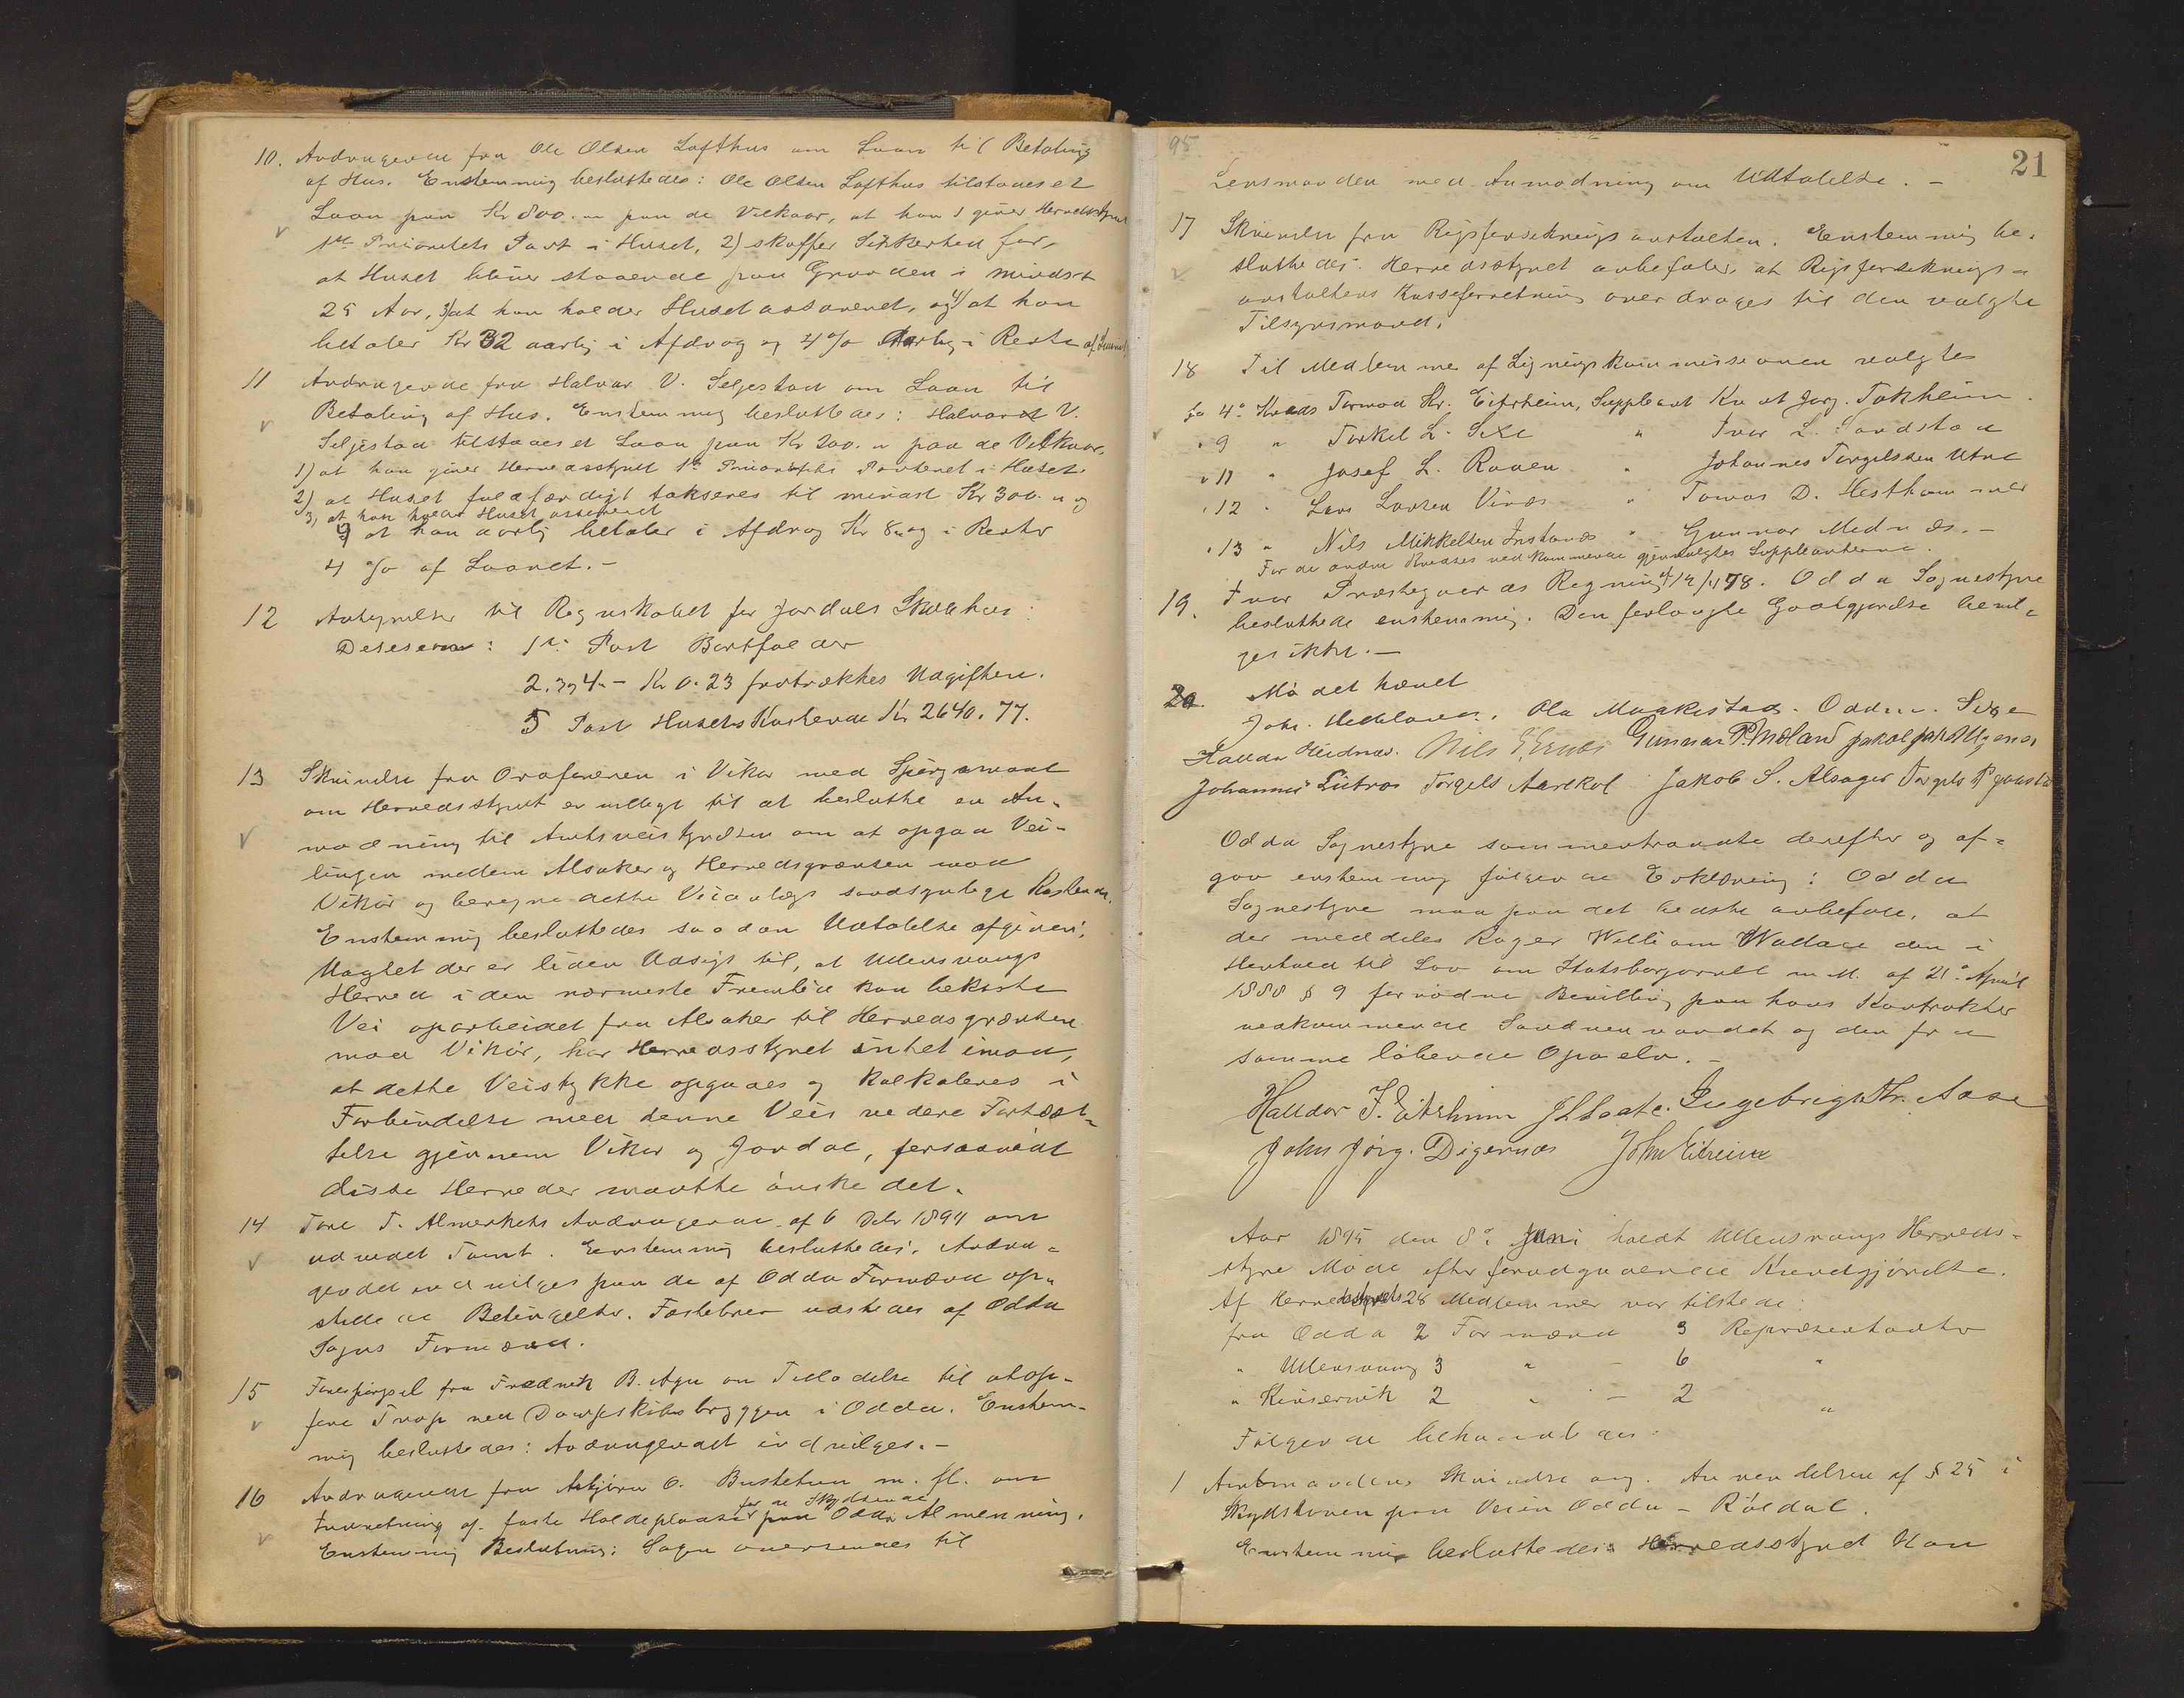 10. Andragende fra Ole Olsen Lofthus om Laan til Betaling
af Hus. Enstemmig besluttedes: Ole Olsen Lofthus tilstaaes et
Laan paa Kr 800.- paa de Vilkaar, at han 1 giver Herredsstyret
1ste Prioritets Pant i Huset, 2) skaffer Sikkerhed for,
at Huset bliver staaende paa Grunden i mindst
25 Aar, 3) at han holder Huset assureret, og 4) at han
betaler Kr 32 aarlig i Afdrag og 4 % Aarlig i Rente af
11 Andragende fra Halvar V. Seljestad om Laan til
Betaling af Hus. Enstemmig besluttedes: Halvard V.
Seljestad tilstaaes et Laan paa Kr 200.- paa de Vilkaar,
1) at han giver Herredsstyret 1ste Prioritets Panteret i Huset
2) at Huset fuldfærdigt takseres til mindst Kr 300.- og
3, at han holder Huset assureret
4) at han aarlig betaler i Afdrag Kr 8.- og i Rente
4 % af Laanet. -
12 Antegnelser til Regnskabet for Jordals Skolehus:
Deseseres: 1ste Post Bortfalder
2. 3 og 4.- Kr 0.23 fratrækkes Udgiften.
5 Post Husets Kostende Kr 2640.77.
13 Skrivelse fra Ordføreren i Vikør med Spørgsmaal
om Herredsstyret er villigt til at beslutte en An-
modning til Amtsveistyrelsen om at opgaa Vei-
linjen mellem Alsaker og Herredsgrænsen mod
Vikør og beregne dette Veianlægs sandsynlige Kostende.
Enstemmig besluttedes saadan Udtalelse afgiven:
Uagtet der er liden Udsigt til, at Ullensvangs
Herred i den nærmeste Fremtid kan bekoste
Vei oparbeidet fra Alsaker til Herredsgrænsen
mod Vikør, har Herredsstyret intet imod,
at dette Veistykke opgaaes og kalkuleres i
Forbindelse med denne Veis videre Fortsæt-
telse gjennem Vikør og Jondal, forsaavidt
disse Herreder maatte ønske det.
14 Tore T. Almerkets Andragende af 6 Debr 1894 om
udvidet Tomt. Enstemmig besluttedes: Andra-
gendet indvilges paa de af Odda Formænd op-
stillede Betingelser. Fæstebrev udstedes af Odda
Sogns Formænd.
15 Forespørgsel fra Fredrik B. Aga om Tilladelse til at op-
føre Trap ved Dampskibsbryggen i Odda. Enstem-
mig besluttedes: Andragendet indvilges. -
16 Andragende fra Asbjørn O. Bustetun m. fl. om
for de Skydsende
Indretning af faste Holdepladse paa Odda Almenning.
Enstemmig Beslutning: Sagen oversendes til
95
21
Lensmanden med Anmodning om Udtalelse. -
17 Skrivelse fra Rigsforsikringsanstalten. Enstemmig be-
sluttedes: Herredsstyret anbefaler, at Rigsforsikrings-
anstaltens Kasseforretning overdrages til den valgte
Tilsynsmand.
18 Til Medlemmer af Ligningskommissionen valgtes
fo 4de Kreds Tormod Kr. Eitrheim, Suppleant Knut Jørg. Tokheim.
" 9 " Torkel L. Sexe " Ivar L. Sandstad
" 11 " Josef L. Raaen " Johannes Torgilsen Utne
" 12 " Lars Larsen Vines " Tomas D. Hesthammer
" 13 " Nils Mikkelsen Instanes " Gunnar Mednæs. -
For de andre Kredses vedkommende gjenvalgtes Suppleanterne.
19. Ivar Præstegaards Regning af 14/4 78. Odda Sognestyre
besluttede enstemmig: Den forlangte Godtgjørelse bevil-
ges ikke. -
20. Mødet hævet
Johs. Ola Maakestad. Odd Sexe
Halldor Meidnæs. Nils Gunnar P. Mæland Jakob
Johannes Lutro Torgels Aarekol Jakob S. Alsager Torgils P
Odda Sognestyre sammentraadte derefter og af-
gav enstemmig følgende Erklæring: Odda
Sognestyre maa paa det bedste anbefale, at
der meddeles Roger William Wallace den i
Henhold til Lov om Statsborgerret m. M. af 21de April
1888 § 9 fornødne Bevilling paa hans Kontrakter
vedkommende Sandvenvandet og den fra
samme løbende Opo elv. -
Halldor J. Eitrheim Ingebrigt Aase
John Jørg. Digernæs John Eitreim
Aar 1895 den 8de Juni holdt Ullensvangs Herreds-
styre Møde efter forudgaaende Kundgjørelse.
Af Herredsstyrets 28 Medlemmer var tilstede:
fra Odda 2 Formænd 3 Repræsentanter
" Ullensvang 3 " - 6 "
" Kinservik 2 " - 2 "
Følgende behandledes:
1 Amtmandens Skrivelse ang. Anvendelsen af § 25 i
Skydsloven paa Veien Odda - Røldal.
Enstemmig besluttedes: Herredsstyret kan